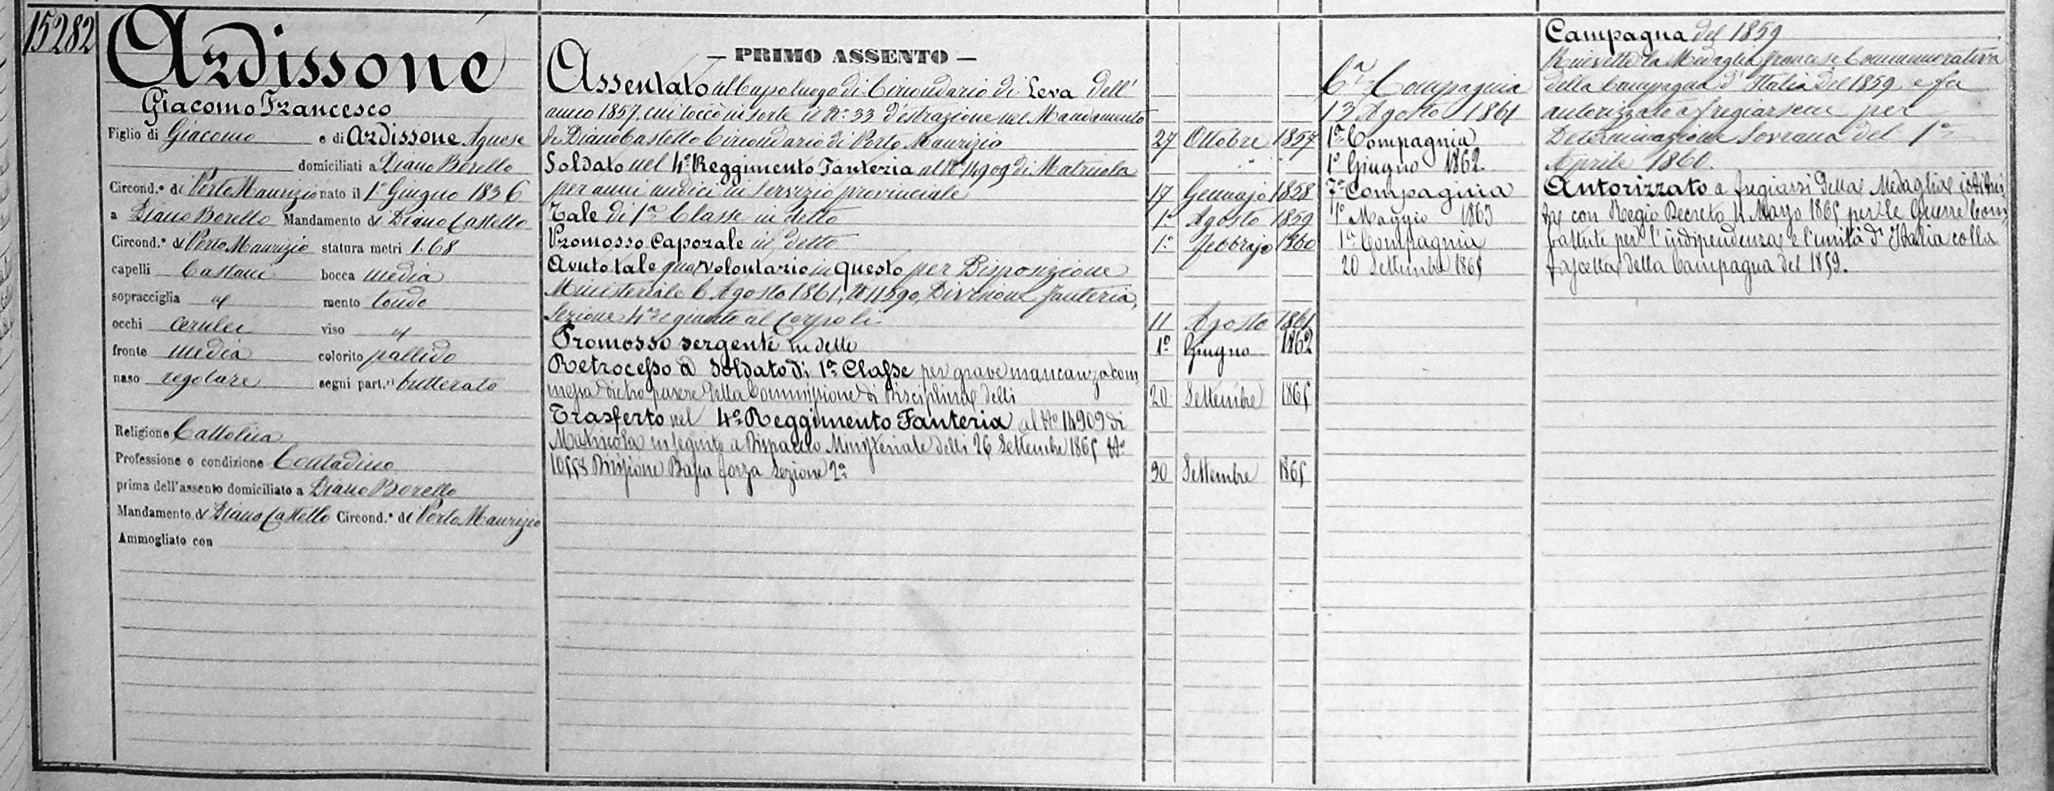 15282
Ardissone
Giacomo Francesco
Figlio di Giacomo e di Ardissone Agnese
domiciliati a Diano Borello
Circond.º di Porto Maurizio nato il 1º Giugno 1836
a Diano Borello Mandamento di Diano Castello
Circond.º di Porto Maurizio statura metri 1.68
capelli Castani bocca media
sopracciglia id mento tondo
occhi cerulei viso id
fronte media colorito pallido
naso regolare segni part.ri butterato
Religione Cattolica
Professione o condizione Contadino
prima dell'assento domiciliato a Diano Borello
Mandamento di Diano Castello Circond.º di Porto Maurizio
Ammogliato con
— PRIMO ASSENTO —
Assentato al Capo luogo di Circondario di Leva dell'
anno 1857, cui toccò in sorte il Nº 33 d'estrazione nel Mandamento
di Diano Castello Circondario di Porto Maurizio 27 Ottobre 1857
Soldato nel 4º Reggimento Fanteria al Nº 14909 di Matricola
per anni undici di servizio provinciale 17 Gennajo 1858
Tale di 1ª Classe in detto 1º Agosto 1859
Promosso Caporale in detto 1º Febbrajo 1860
Avuto tale qual volontario in questo per Disposizione
Ministeriale 6 Agosto 1861, Nº 11590, Divisione Fanteria,
Sezione 4ª e giunto al Corpo li 11 Agosto 1861
Promosso sergente in detto 1º Giugno 1862
Retrocesso a Soldato di 1ª Classe per grave mancanza com
messa dietro parere della Commissione di Disciplina delli 20 Settembre 1865
Trasferto nel 4º Reggimento Fanteria al Nº 14909 di
Matricola in seguito a Dispaccio Ministeriale delli 26 Settembre 1865 Nº
10558 Divisione Bassa forza Sezione 2ª 30 Settembre 1865
6ª Compagnia
13 Agosto 1861
1ª Compagnia
1º Giugno 1862
7ª Compagnia
1º Maggio 1863
1ª Compagnia
20 Settembre 1865
Campagna del 1859
Ricevette la Medaglia francese Commemorativa
della Campagna d'Italia del 1859 e fu
autorizzato a fregiarsene per
Determinazione Sovrana del 1º
Aprile 1860.
Autorizzato a fregiarsi della Medaglia istitui
ta con Regio Decreto 4 Marzo 1865 per le Guerre Com
battute per l'indipendenza e l'unità d'Italia colla
fascetta della Campagna del 1859.